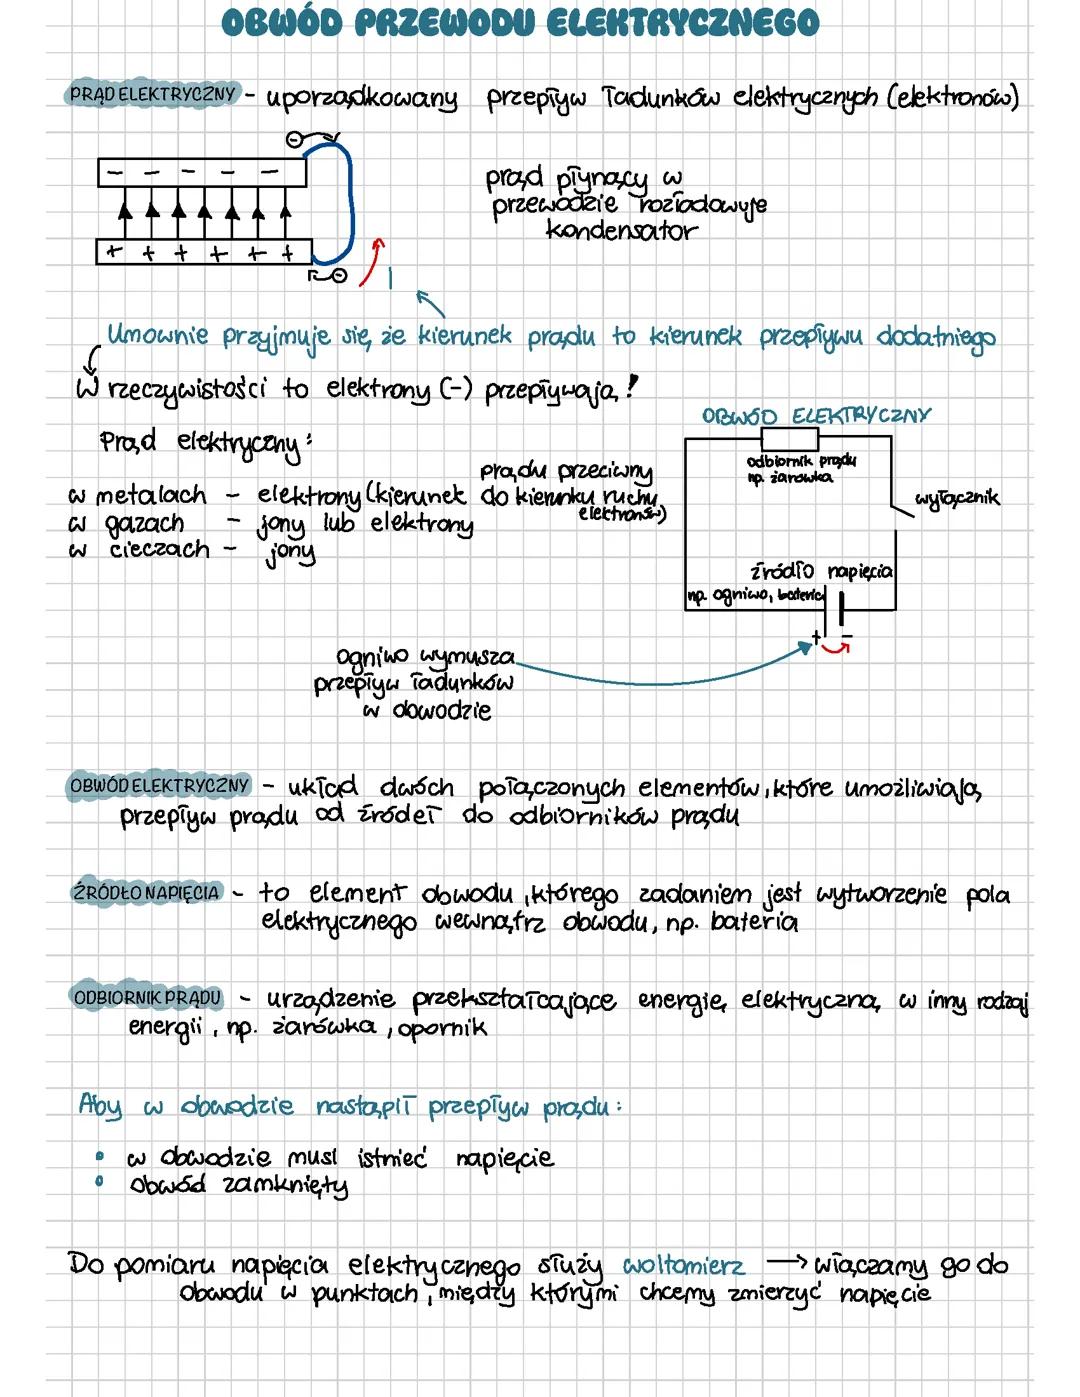 OBWÓD PRZEWODU ELEKTRYCZNEGO
PRĄD ELEKTRYCZNY - uporządkowany przepływ ładunków elektrycznych (elektronów)
prąd płynący w
przewodzie rozładowuje
kondensator
- - - - -
+ + + + + +
I
Umownie przyjmuje się, że kierunek prądu to kierunek przepływu dodatniego
W rzeczywistości to elektrony (-) przepływają!
Prąd elektryczny:
w metalach - elektrony (kierunek prądu przeciwny do kierunku ruchu elektronów)
w gazach - jony lub elektrony
w cieczach - jony
OBWÓD ELEKTRYCZNY
odbiornik prądu
np. żarówka
wyłącznik
źródło napięcia
np. ogniwo, bateria
+ -
ogniwo wymusza
przepływ ładunków
w obwodzie
OBWÓD ELEKTRYCZNY - układ dwóch połączonych elementów, które umożliwiają
przepływ prądu od źródeł do odbiorników prądu
ŹRÓDŁO NAPIĘCIA - to element obwodu, którego zadaniem jest wytworzenie pola
elektrycznego wewnątrz obwodu, np. bateria
ODBIORNIK PRĄDU - urządzenie przekształcające energię elektryczną w inny rodzaj
energii, np. żarówka, opornik
Aby w obwodzie nastąpił przepływ prądu:
• w obwodzie musi istnieć napięcie
• obwód zamknięty
Do pomiaru napięcia elektrycznego służy woltomierz → włączamy go do
obwodu w punktach, między którymi chcemy zmierzyć napięcie